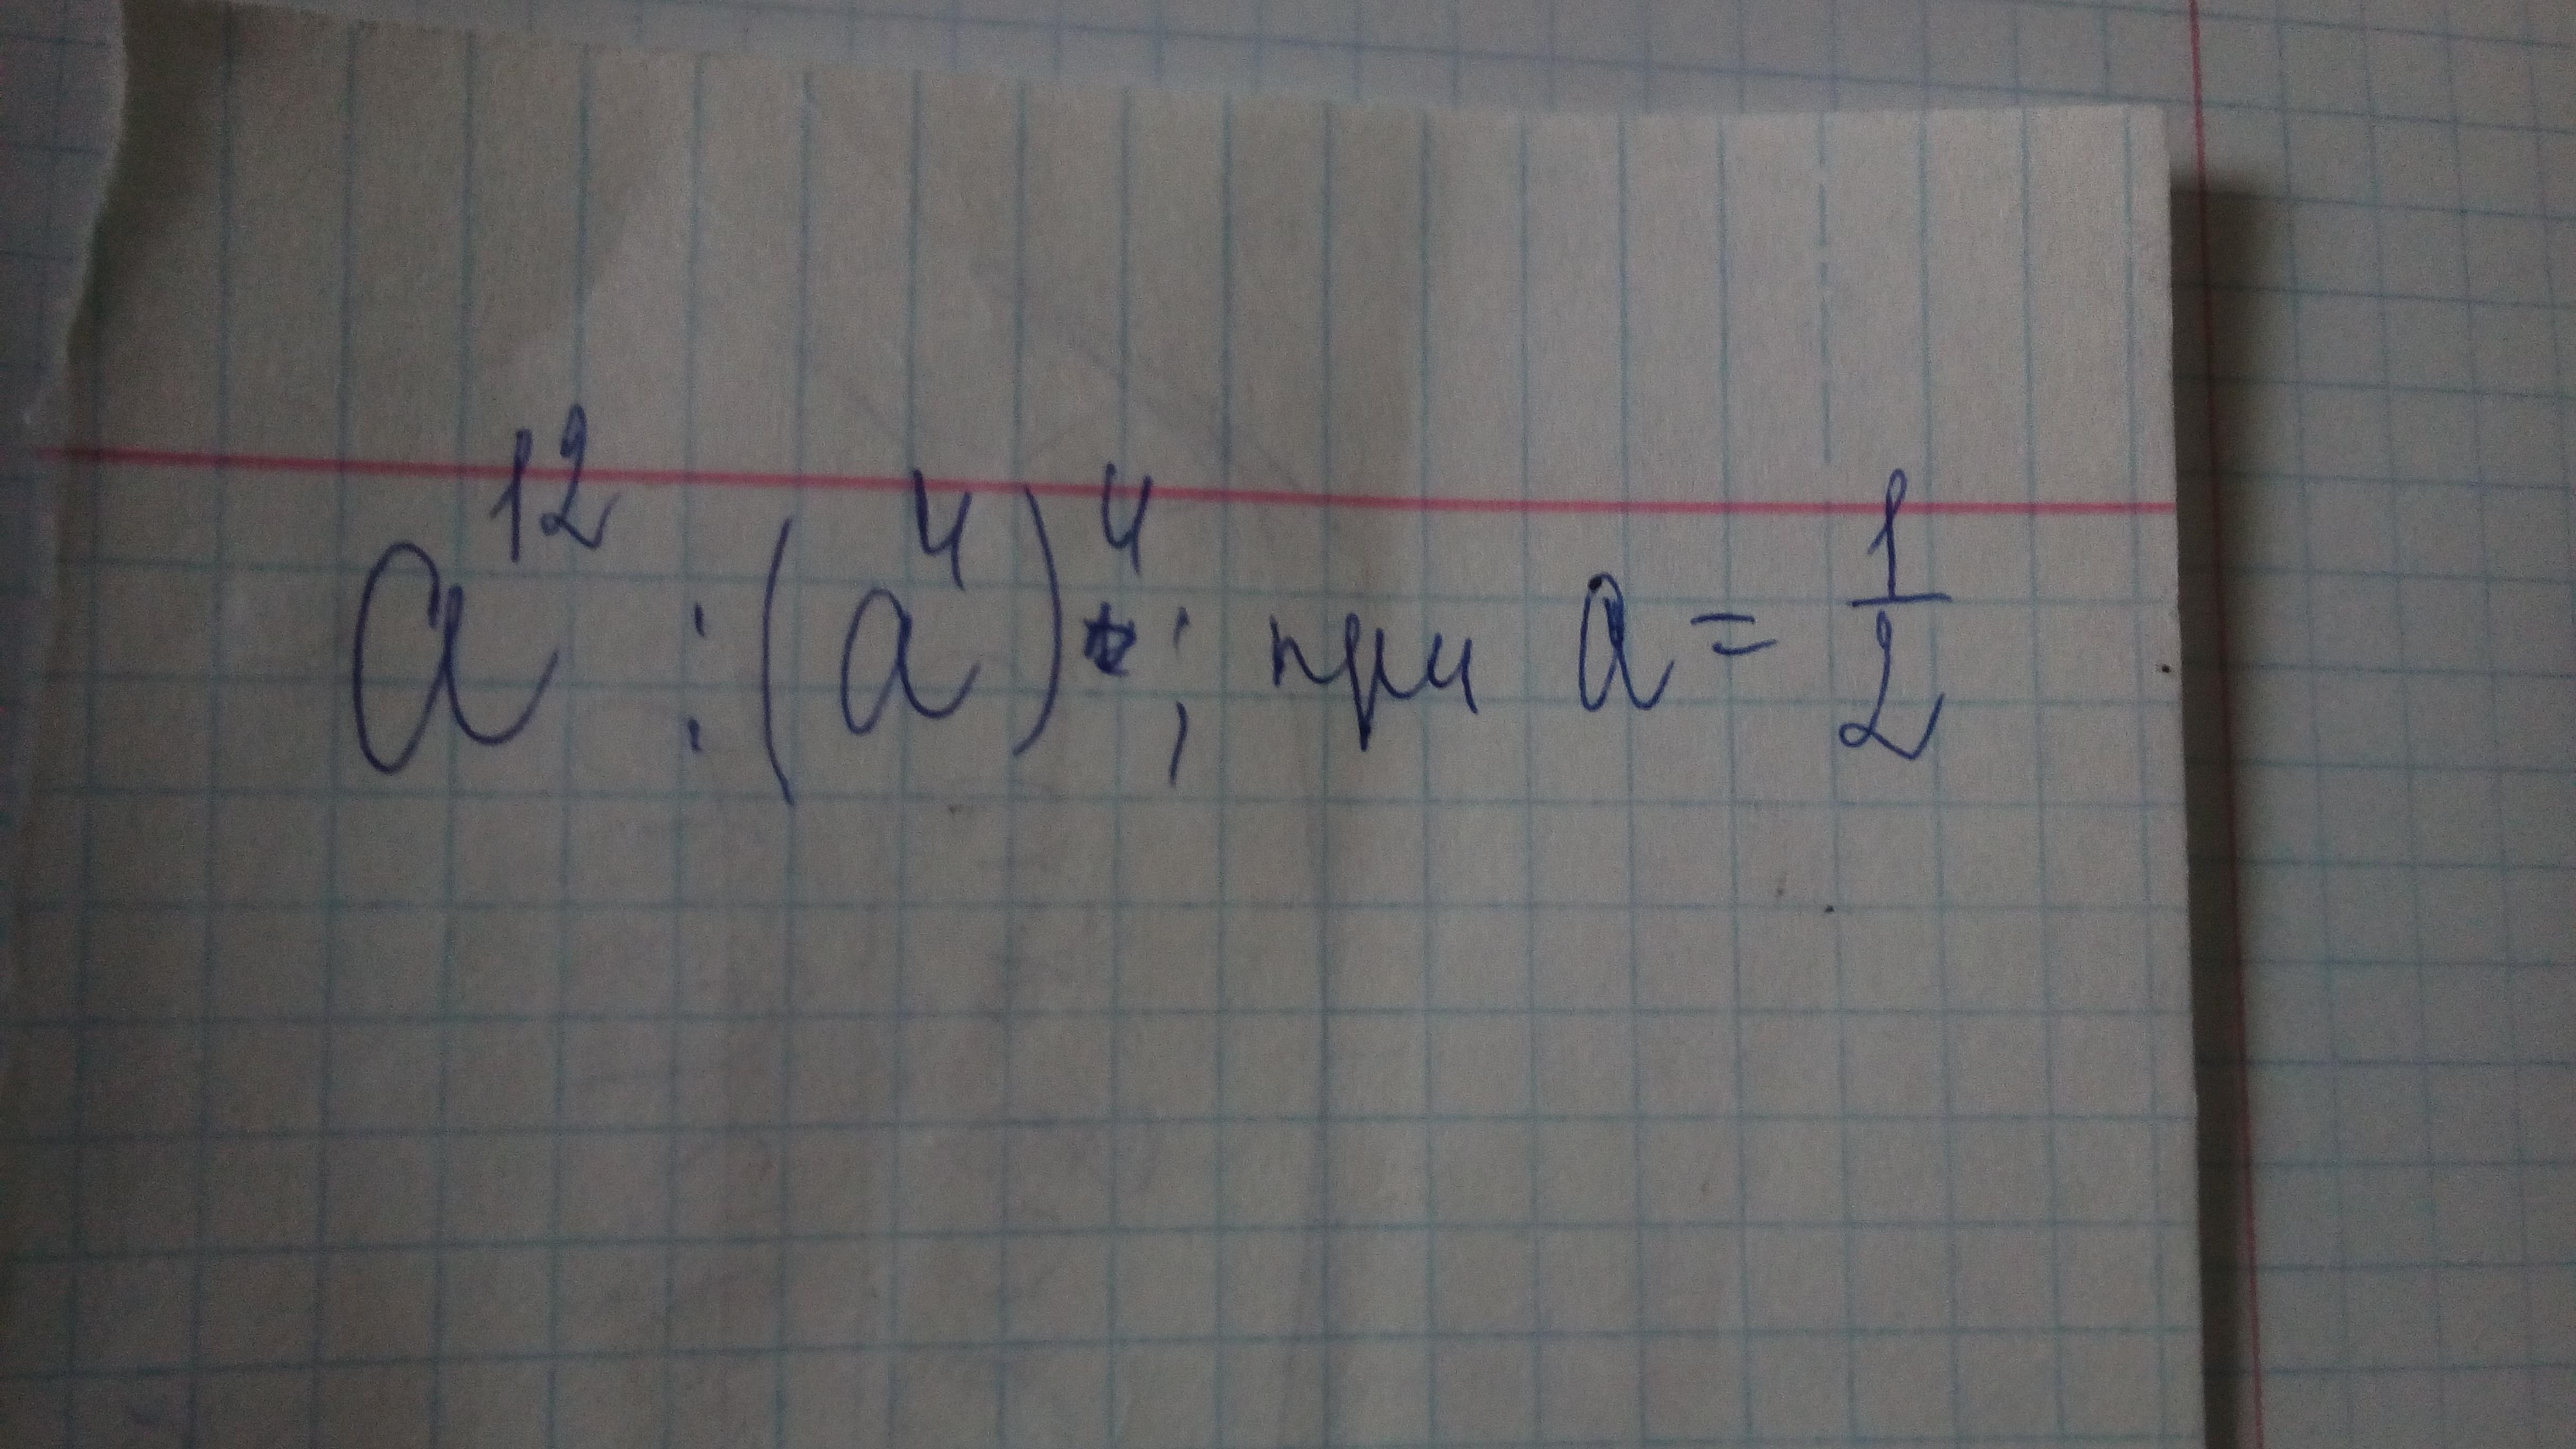 a¹² : (a⁴)⁴; при a = 1/2